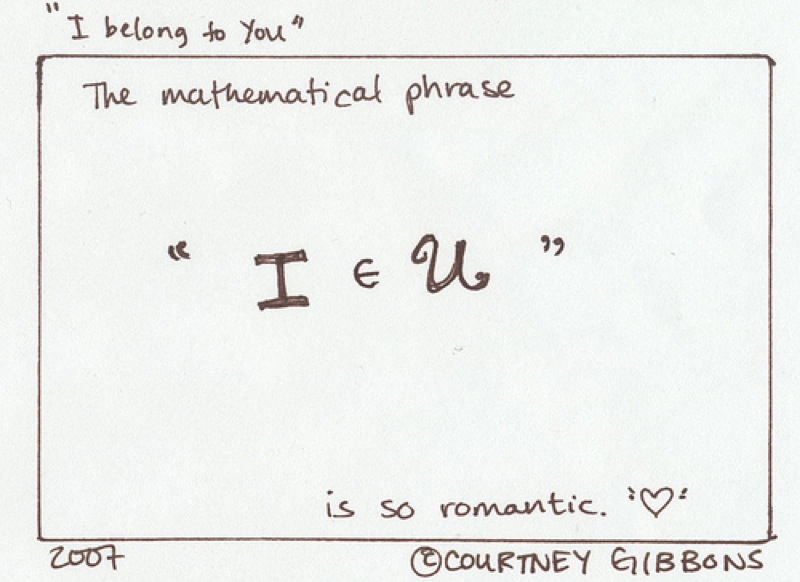 "I belong to You"
The mathematical phrase
" I ∈ U "
is so romantic. ♡
2007
©COURTNEY GIBBONS